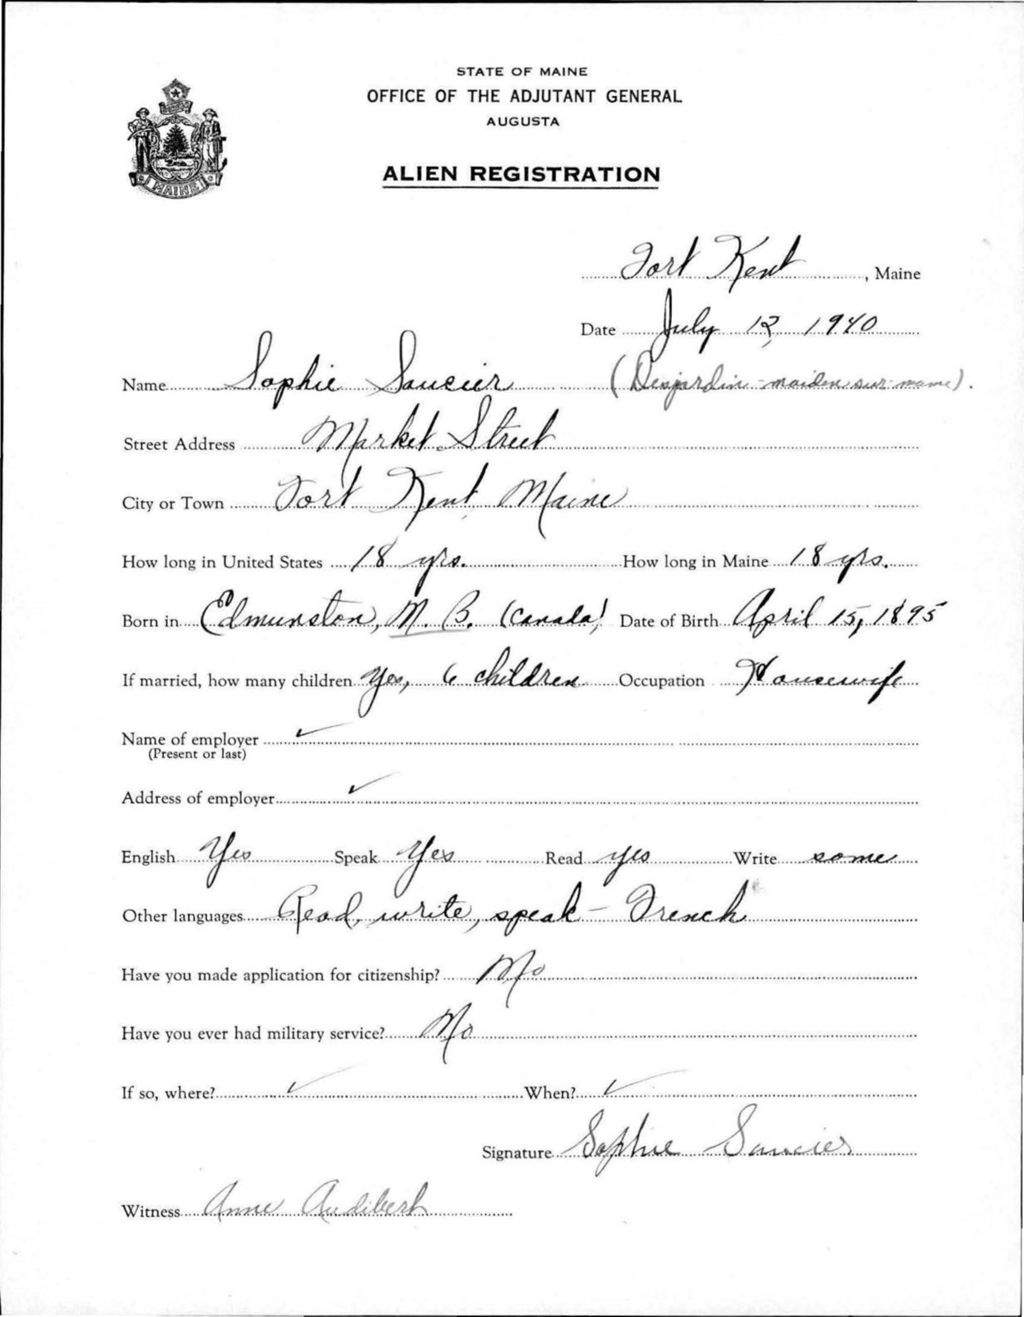 STATE OF MAINE
OFFICE OF THE ADJUTANT GENERAL
AUGUSTA
ALIEN REGISTRATION
MAINE
Fort Kent, Maine
Date July 12, 1940
Name Sophie Saucier (Desjardin - maiden surname).
Street Address Market Street
City or Town Fort Kent, Maine
How long in United States 18 yrs. How long in Maine 18 yrs.
Born in Edmunston, N. B. (Canada) Date of Birth April 15, 1895
If married, how many children Yes, 6 children Occupation Housewife
Name of employer ✓
(Present or last)
Address of employer ✓
English Yes Speak Yes Read yes Write some
Other languages Read, write, speak - French
Have you made application for citizenship? No
Have you ever had military service? No
If so, where? ✓ When? ✓
Signature Sophie Saucier
Witness Anne Audibert